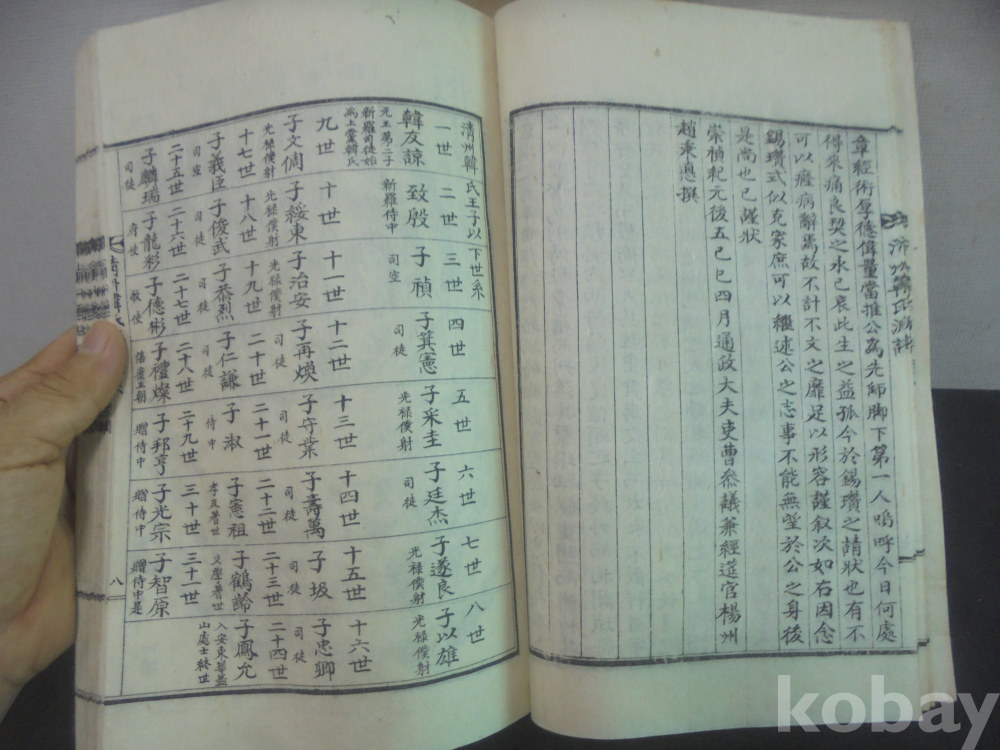 章經術厚德偉量當推公為先師脚下第一人嗚呼今日何處
得來痛良契之永已哀此生之益孤今於錫瓚之請狀也有不
可以癃病辭焉故不計不文之靡足以形容謹叙次如右因念
錫瓚式似克家庶可以繼述公之志事不能無望於公之身後
是尚也已謹狀
崇禎紀元後五己巳四月通政大夫吏曹參議兼經筵官楊州
趙秉悳撰
清州韓氏王子以下世系
一世 二世 三世 四世 五世 六世 七世 八世
韓友諒 致殷 子禎 子箕憲 子采圭 子廷杰 子遂良 子以雄
元王第二子 新羅侍中 司空 司徒 光禄僕射 司徒 光禄僕射 光禄僕射
新羅前徙始
為上黨韓氏
九世 十世 十一世 十二世 十三世 十四世 十五世 十六世
子文倜 子綏東 子治安 子再煐 子守業 子壽萬 子圾 子忠卿
光禄僕射 光禄僕射 光禄僕射 司徒 司徒 司徒 司徒 司徒
十七世 十八世 十九世 二十世 二十一世 二十二世 二十三世 二十四世
子義臣 子俊武 子恭烈 子仁謙 子淑 子憲祖 子鶴齡 子鳳允
司空 司徒 司徒 司徒 侍中 孝友著世 文學著世 入安東華蓋
山處士終世
二十五世 二十六世 二十七世 二十八世 二十九世 三十世 三十一世
子麟瑞 子龍彩 子德彬 子禮燦 子邦亨 子光宗 子智原
司徒 贈侍中 贈侍中 贈侍中是
八
kobay